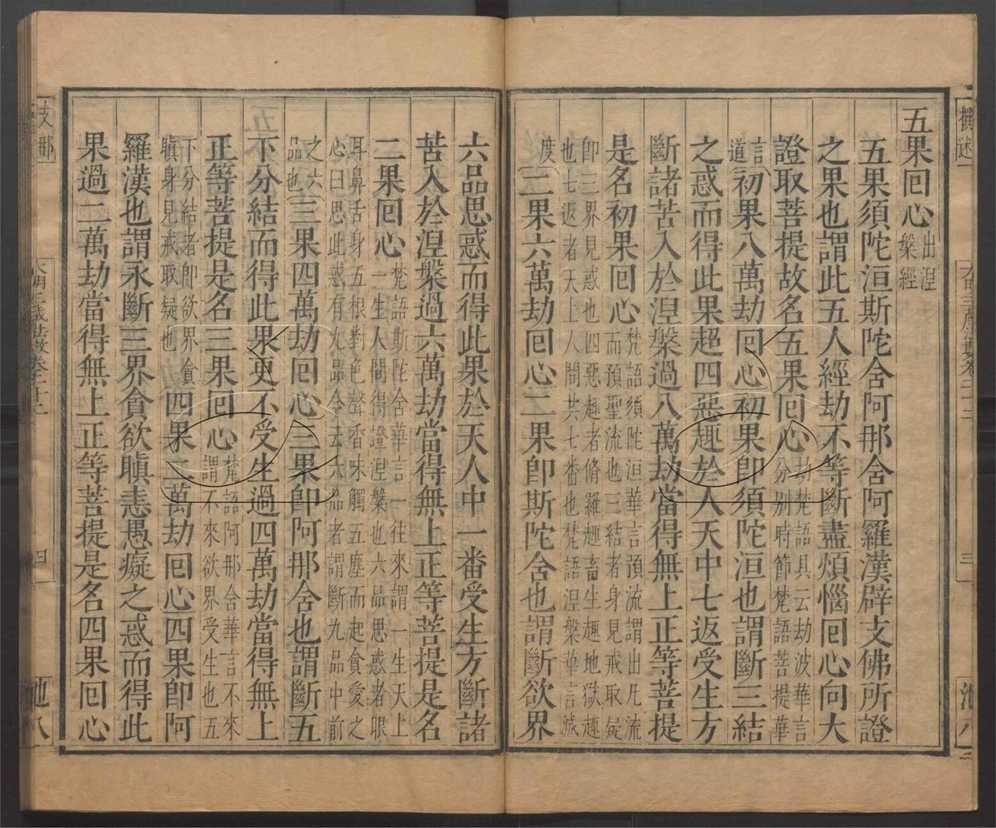 五果囘心出涅
槃經
五果須陀洹斯陀含阿那含阿羅漢辟支佛所證
之果也謂此五人經劫不等斷盡煩惱囘心向大
證取菩提故名五果囘心劫梵語具云劫波華言
分别時節梵語菩提華
言
道初果八萬劫囘心初果卽須陀洹也謂斷三結
之惑而得此果超四惡趣於人天中七返受生方
斷諸苦入於涅槃過八萬劫當得無上正等菩提
是名初果囘心梵語須陀洹華言預流謂出凡流
而預聖流也三結者身見戒取疑
卽三界見惑也四惡趣者脩羅趣畜生趣地獄趣
也七返者天上人間共七番也梵語涅槃華言滅
度二果六萬劫囘心二果卽斯陀含也謂斷欲界
六品思惑而得此果於天人中一番受生方斷諸
苦入於涅槃過六萬劫當得無上正等菩提是名
二果囘心梵語斯陀含華言一往來謂一生天上
一生人間得證涅槃也六品思惑者眼
耳鼻舌身五根對色聲香味觸五塵而起貪愛之
心曰思此惑有九品今云六品者謂斷九品中前
之六
品也三果四萬劫囘心三果卽阿那含也謂斷五
下分結而得此果更不受生過四萬劫當得無上
正等菩提是名三果囘心梵語阿那含華言不來
謂不來欲界受生也五
下分結者卽欲界貪
瞋身見戒取疑也四果二萬劫囘心四果卽阿
羅漢也謂永斷三界貪欲瞋恚愚癡之惑而得此
果過二萬劫當得無上正等菩提是名四果囘心
支那
大明三藏法數卷二十二
四
池八
撰述
三